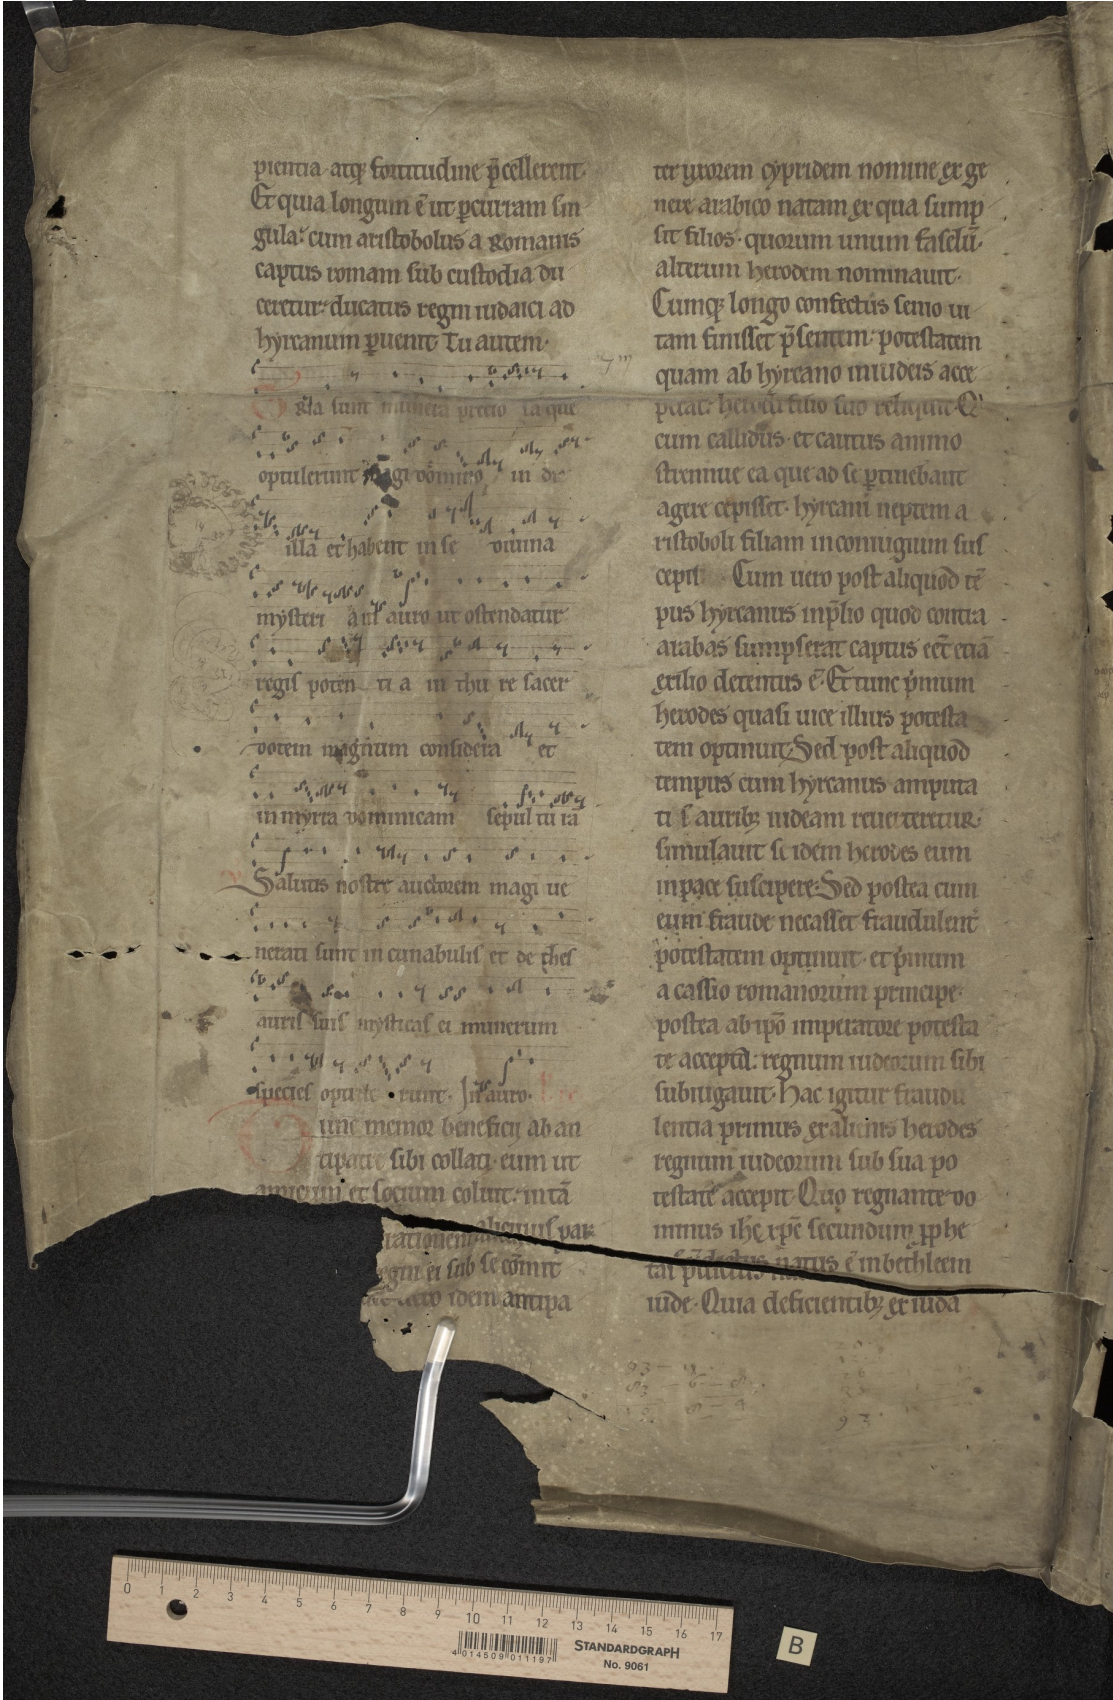 pientia atq; fortitudine p̄cellerent.
Et quia longum ē ut ꝑcurram sin
gula: cum aristobolus a Romanis
captus romam sub custodia du
ceretur: ducatus regni iudaici ad
hyrcanum ꝑuenit. Tu autem.
Tria sunt munera precio sa que
optulerunt magi domino in die
illa et habent in se diuina
mysteri a in auro ut ostendatur
regis poten ti a in thu re sacer
dotem magnum considera et
in myrra dominicam sepul tu rā
Salutis nostre auctorem magi ue
nerati sunt in cunabulis et de thes
auris suis mysticas ei munerum
species optule runt. In auro.
Hunc memor beneficij ab an
tipatre sibi collati. eum ut
amicum et socium coluit: in tā
alicuius par
egni ei sub se cōmit
idem antipa
ter uxorem cypridem nomine ex ge
nere arabico natam ex qua sump
sit filios. quorum unum faselū.
alterum herodem nominauit.
Cumq; longo confectus senio ui
tam finisset p̄sentem: potestatem
quam ab hyrcano in iudeis acce
perat: herodi filio suo reliquit. Q
cum callidus et cautus animo
strennue ea que ad se ꝑtinebant
agere cepisset. hyrcani neptem a
ristoboli filiam in coniugium sus
cepit Cum uero post aliquod tē
pus hyrcanus in p̄lio quod contra
arabas sumpserat captus eēt etiā
exilio detentus ē. Et tunc p̄mum
herodes quasi uice illius potesta
tem optinuit. Sed post aliquod
tempus cum hyrcanus amputa
tis aurib; iudeam reuerteretur.
simulauit se idem herodes eum
in pace suscipere: Sed postea cum
eum fraude necasset fraudulent̄
potestatem optinuit. et p̄mum
a cassio romanorum principe.
postea ab ip̄o imperatore potesta
te accepta: regnum iudeorum sibi
subiugauit. Hac igitur fraudu
lentia primus ex alienis herodes
regnum iudeorum sub sua po
testate accepit. Quo regnante do
minus ih̄c xp̄c secundum ꝓphe
natus ē in bethleem
iude. Quia deficientib; ex iuda
0 1 2 3 4 5 6 7 8 9 10 11 12 13 14 15 16 17
4 014509 011197
STANDARDGRAPH
No. 9061
B